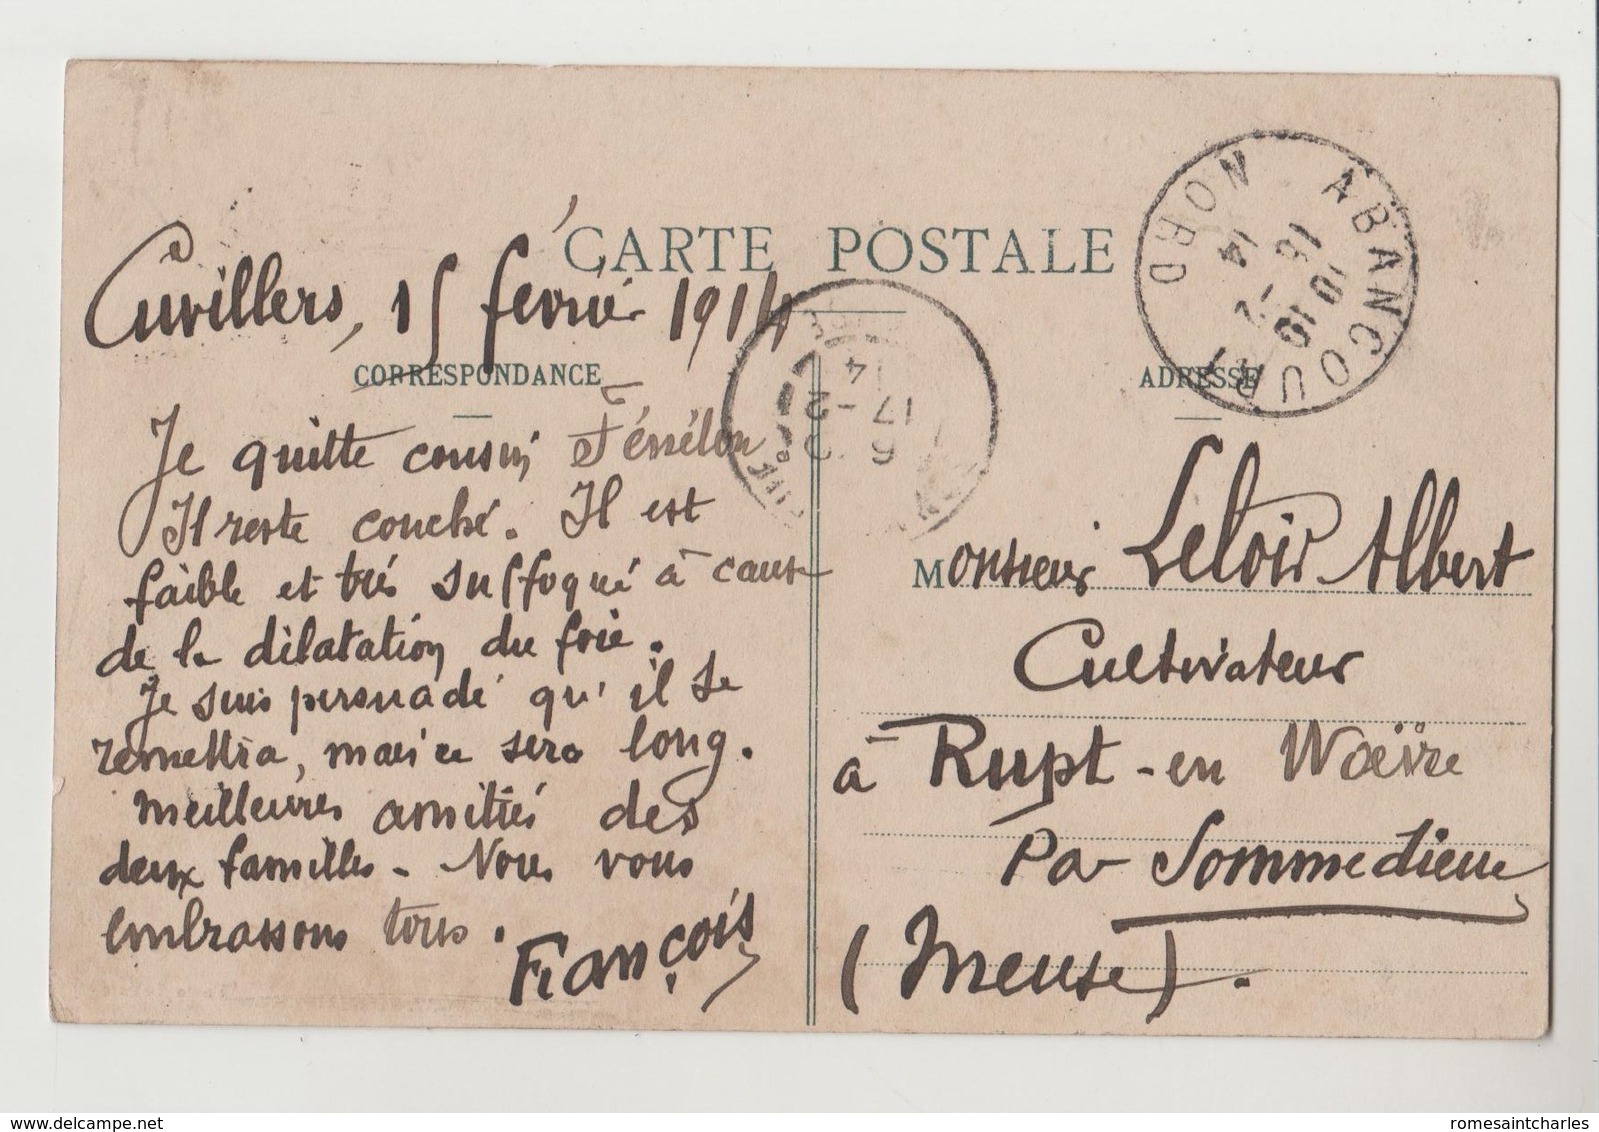 CARTE POSTALE
Cuvillers, 15 fevrié 1914
CORRESPONDANCE
Je quitte cousin Fénélon
Il reste couché. Il est
faible et très suffoqué à cause
de la dilatation du foie.
Je suis persuadé qu'il se
remettra, mais ce sera long.
Meilleures amitiés des
deux familles - Nous vous
embrassons tous.
François
ADRESSE
Monsieur Leloir Albert
Cultivateur
à Rupt-en Woëvre
Par Sommedieue
(Meuse).
ABANCOURT
NORD
16 -2
14
6
17 -2
14
delcampe.net
romesaintcharles